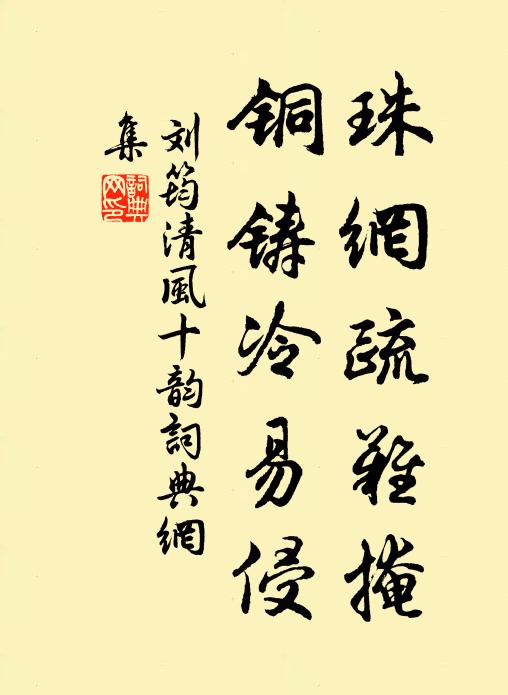 珠網疏難掩
铜铸冷易侵
刘筠清風十韵詞典網
集
詞典網印